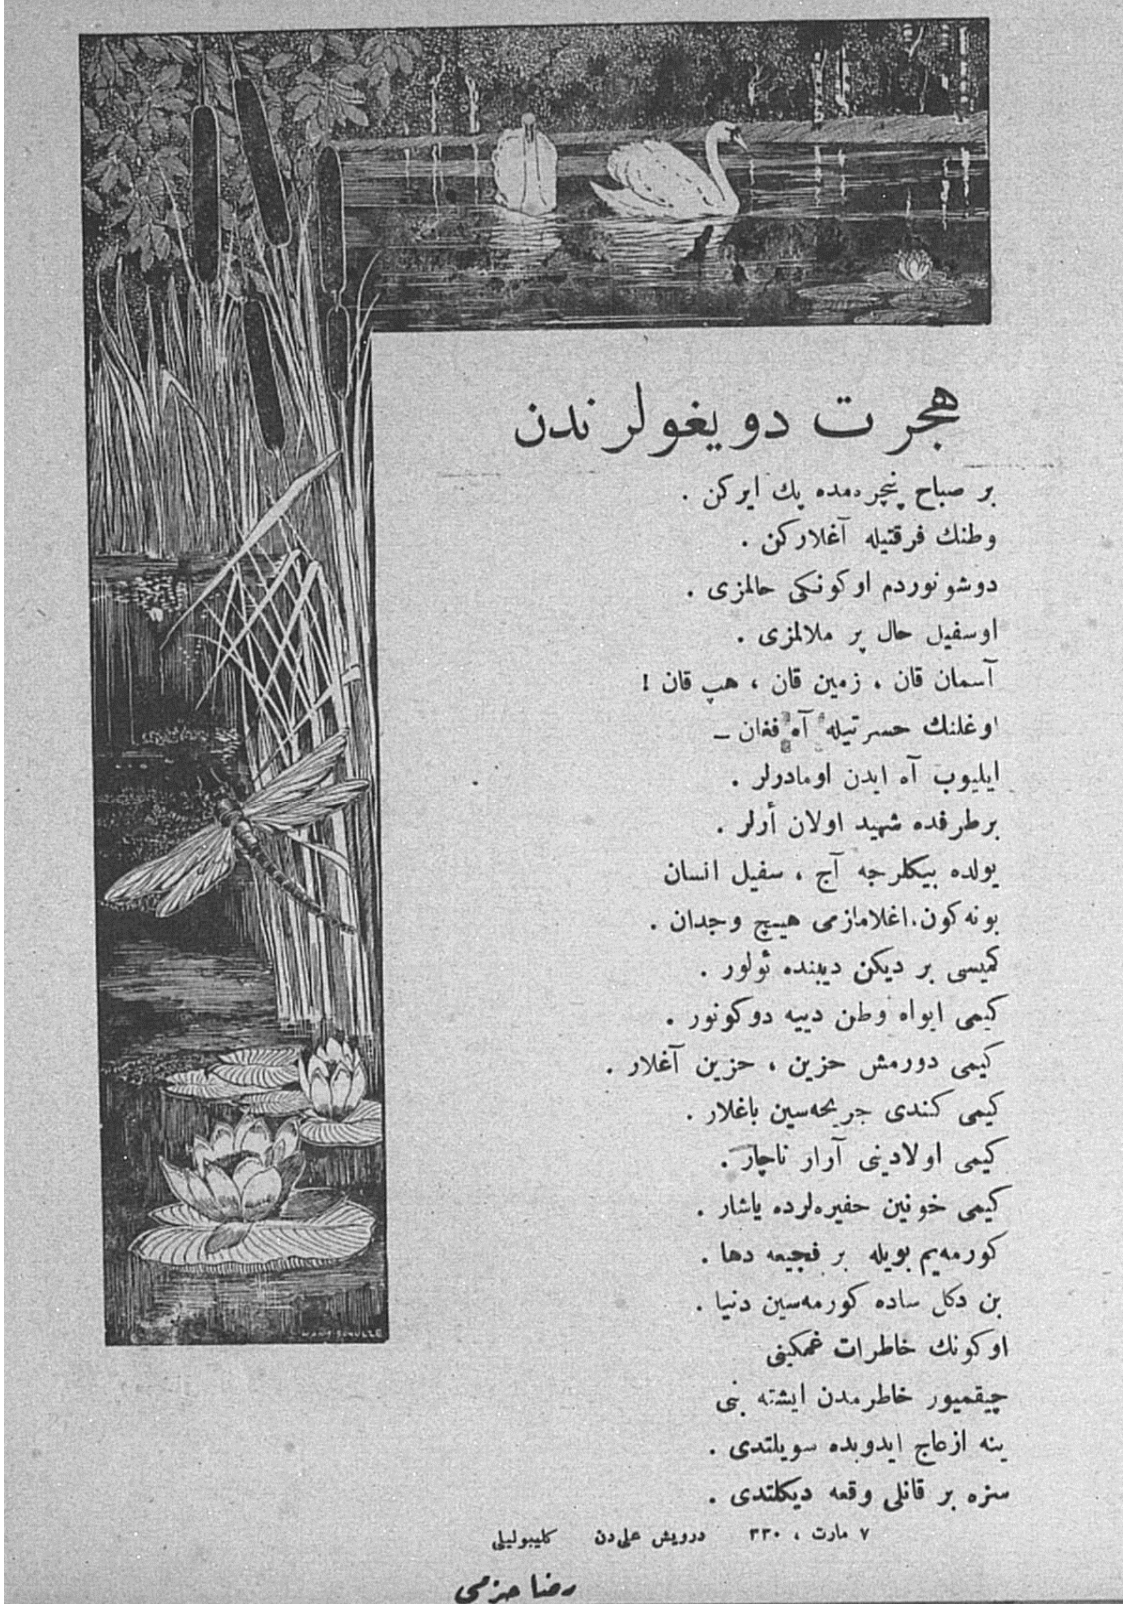 هجرت دويغولرندن
بر صباح پنچره‌مده پك ايركن .
وطنك فرقتيله آغلاركن .
دوشونوردم اوكونكی حالمزی .
اوسفيل حال پر ملالمزی .
آسمان قان ، زمين قان ، هپ قان !
اوغلنك حسرتيله آه فغان ـ
ايليوب آه ايدن اومادرلر .
برطرفده شهيد اولان أرلر .
يولده بيكلرجه آج ، سفيل انسان
بونه‌كون، اغلامازمی هيچ وجدان .
كميسی بر ديكن ديبنده ئولور .
كيمی ايواه وطن دييه دوكونور .
كيمی دورمش حزين ، حزين آغلار .
كيمی كندی جريحه‌سين باغلار .
كيمی اولادينی آرار ناچار .
كيمی خونين حفيره‌لرده ياشار .
كورمه‌يم بويله بر فجيعه دها .
بن دكل ساده كورمه‌سين دنيا .
اوكونك خاطرات غمكينی
چيقميور خاطرمدن ايشته بنی
ينه ازعاج ايدوبده سويلتدی .
سزه بر قانلی وقعه ديكلتدی .
٧ مارت ، ٣٣٠ درويش علی‌دن كليبوليلی
رضا حزمی
HANS SCHULZE